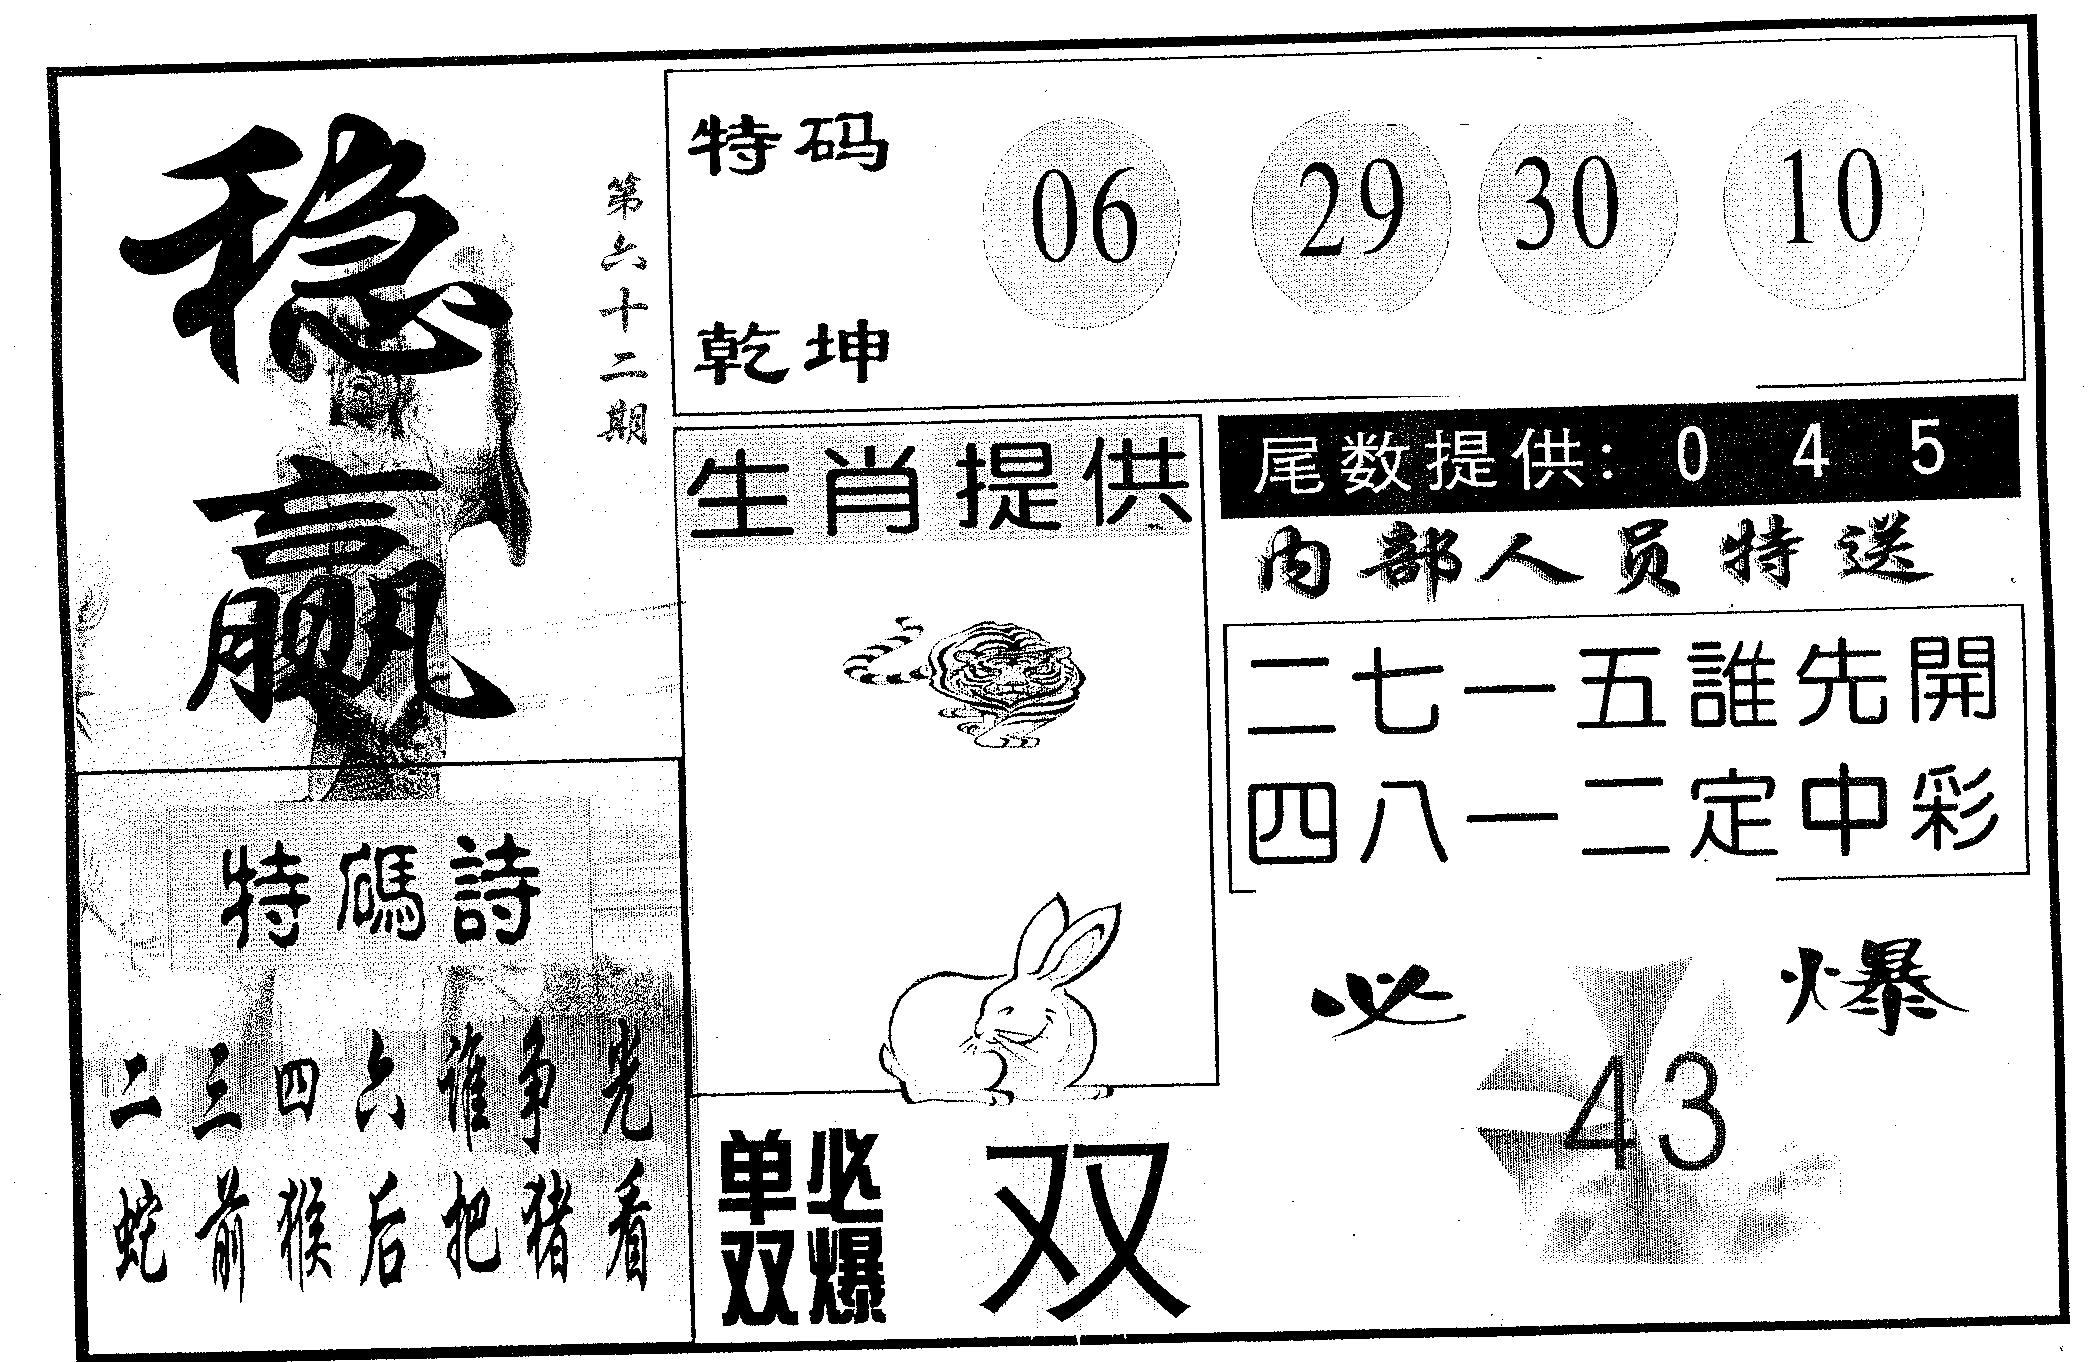 稳赢
第六十二期
特码
乾坤
06 29 30 10
生肖提供
尾数提供：0 4 5
内部人员特送
二七一五誰先開
四八一二定中彩
特碼詩
二三四六谁争光
蛇前猴后把猪看
单双
必爆
双
必爆
43